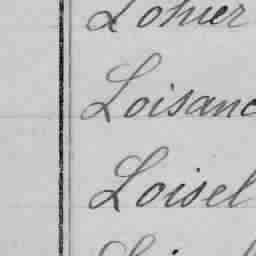 Lohier
Loisanc
Loisel